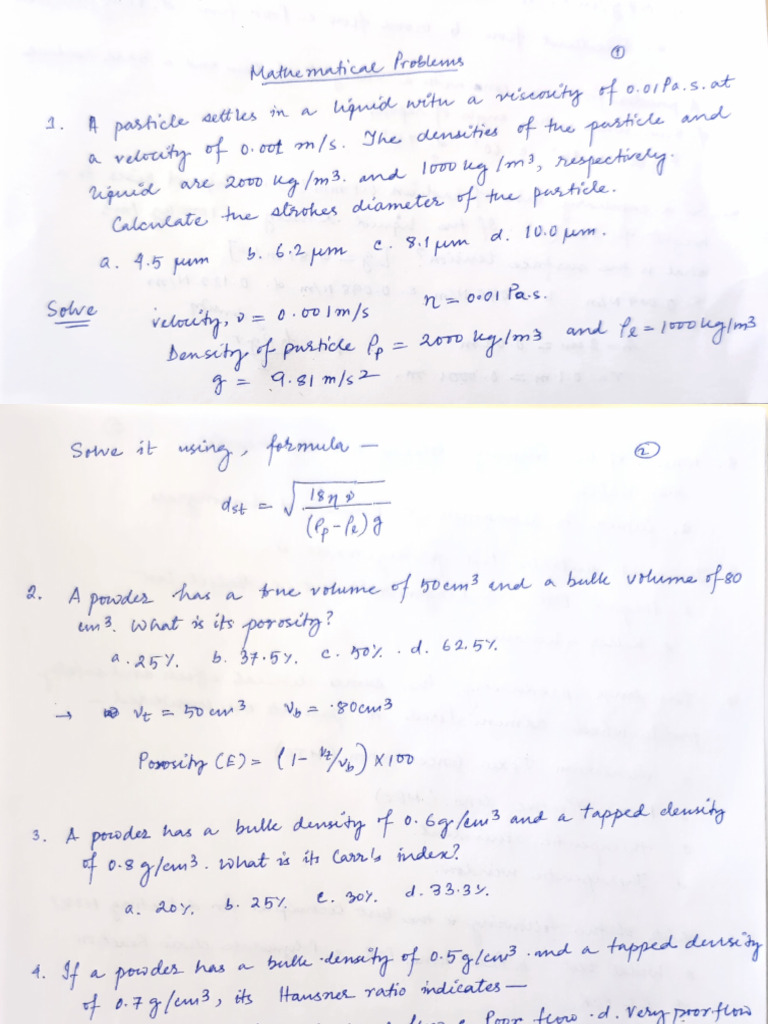 Mathematical Problems
①
1. A particle settles in a liquid with a viscosity of 0.01 Pa.s. at
a velocity of 0.001 m/s. The densities of the particle and
liquid are 2000 kg/m3. and 1000 kg/m3, respectively.
Calculate the strokes diameter of the particle.
a. 4.5 µm b. 6.2 µm c. 8.1 µm d. 10.0 µm.
Solve velocity, v = 0.001m/s η = 0.01 Pa.s.
Density of particle ρp = 2000 kg/m3 and ρl = 1000 kg/m3
g = 9.81 m/s2
Solve it using, formula — ②
dst = √(18ηv / (ρp-ρl)g)
2. A powder has a true volume of 50cm3 and a bulk volume of 80
cm3. What is its porosity?
a. 25%. b. 37.5%. c. 50%. d. 62.5%.
→ vt = 50cm3 Vb = .80cm3
Porosity (E) = (1- vt/vb) x100
3. A powder has a bulk density of 0.6g/cm3 and a tapped density
of 0.8g/cm3. What is its Carr's index?
a. 20%. b. 25%. c. 30%. d. 33.3%.
4. If a powder has a bulk density of 0.5g/cm3 and a tapped density
of 0.7g/cm3, its Hausner ratio indicates—
Poor flow .d. Very poor flow